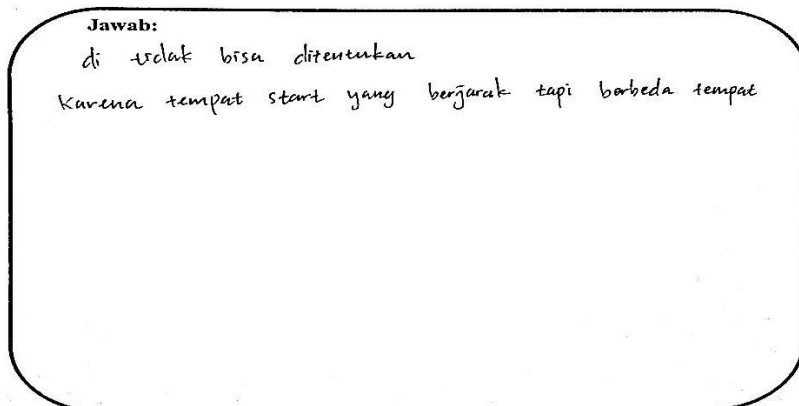 Jawab:
di tidak bisa ditentukan
Karena tempat start yang berjarak tapi berbeda tempat